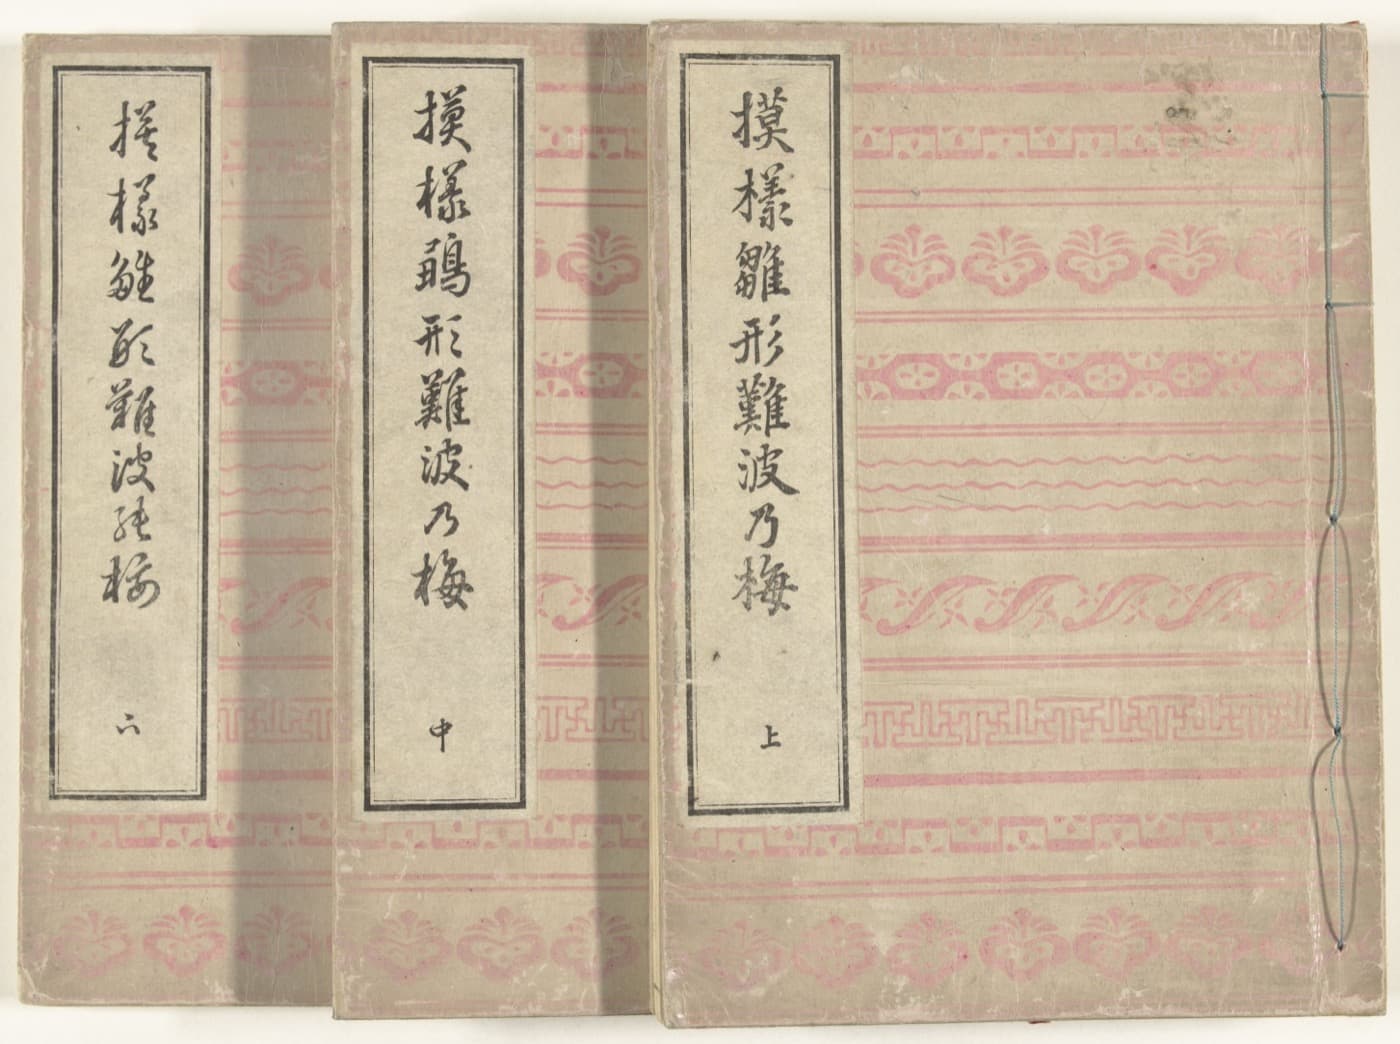 摸樣雛形難波乃梅
上
摸樣鶵形難波乃梅
中
摸樣雛形難波能梅
下